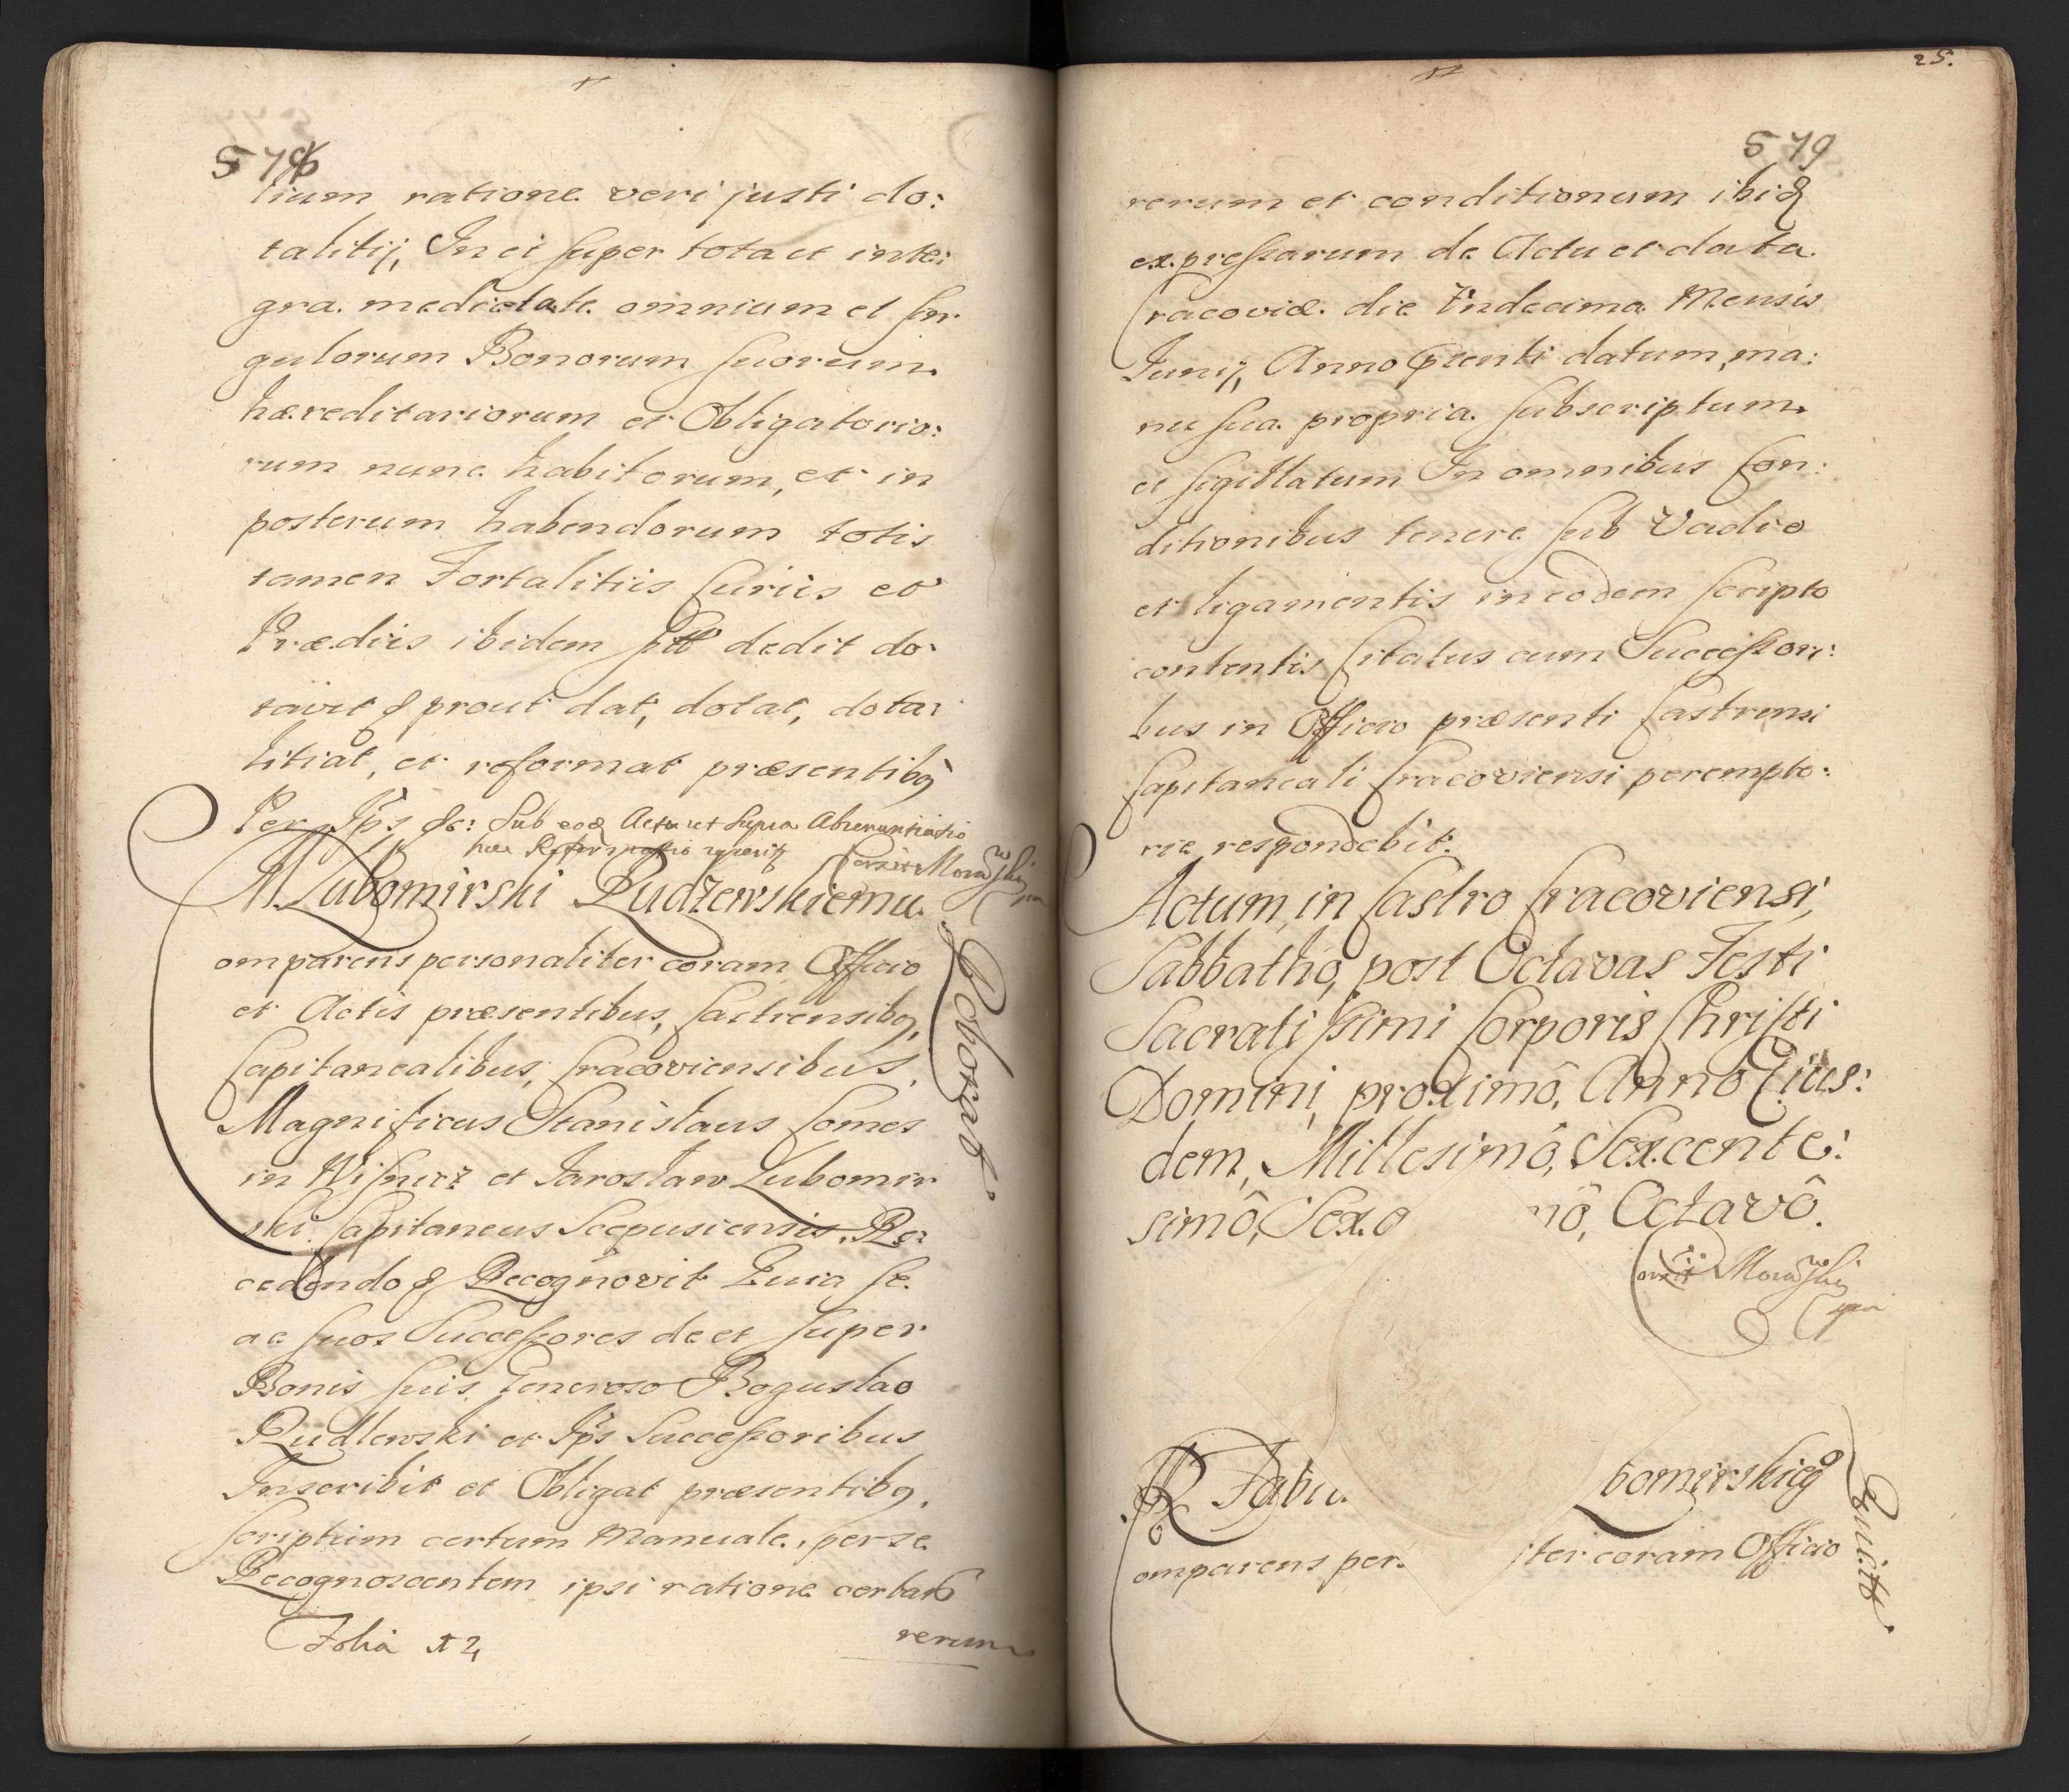 578
lium ratione veri justi do:
talitij, In et super tota et inte:
gra medietate omnium et sin
gulorum Bonorum suorum
hæreditariorum et Obligatorio:
rum nunc habitorum, et in
posterum habendorum totis
tamen Fortalitiis Curiis et
Prædiis ibidem dedit do
tavit & prout dat, dotat, dota:
litiat, et reformat præsentibq
Per Ips &c: Sub eod Actu ut supra Abrenuntiatio
huic Reformationi
Correxit Morawski
M Lubomirski Rudżewskiemu
Roborat
omparens personaliter coram Officio
et Actis præsentibus, Castrensibq,
Capitanealibus, Cracoviensibus,
Magnificus Stanislaus Comes
in Wisnicz et Jaroslaw Lubomir
ski Capitaneus Scepusiensis, Re:
cedendo & Recognovit Quia se
ac suos Successores de et super
Bonis suis Generoso Boguslao
Rudlewski et Ips Successoribus
Inscribit et Obligat præsentibq,
Scriptum certum Manuale, per se
Recognoscentem ipsi ratione certarb
Folia 2
rerum
25.
579
rerum et conditionum ibid
expressarum de Actu et data
Cracoviæ die Vndecima Mensis
Junij, Anno præsenti datum, ma:
nu sua propria subscriptum
et sigillatum In omnibus Con:
ditionibus tenere sub Vadio
et ligamentis in eodem scripto
contentis Citatus cum Successori:
bus in Officio præsenti Castrensi
Capitaneali Cracoviensi perempto:
rie respondebit.
Actum, in Castro Cracoviensi,
Sabbatho, post Octavas Festi
Sacratissimi Corporis Christi
Domini, proximô, Anno Eius:
dem, Millesimô, Sexcente:
simô, Sex.o nô, Octavô.
Correxit Morawski
R Tabu. bomirskieg
Quitt
omparens per. iter coram Officio